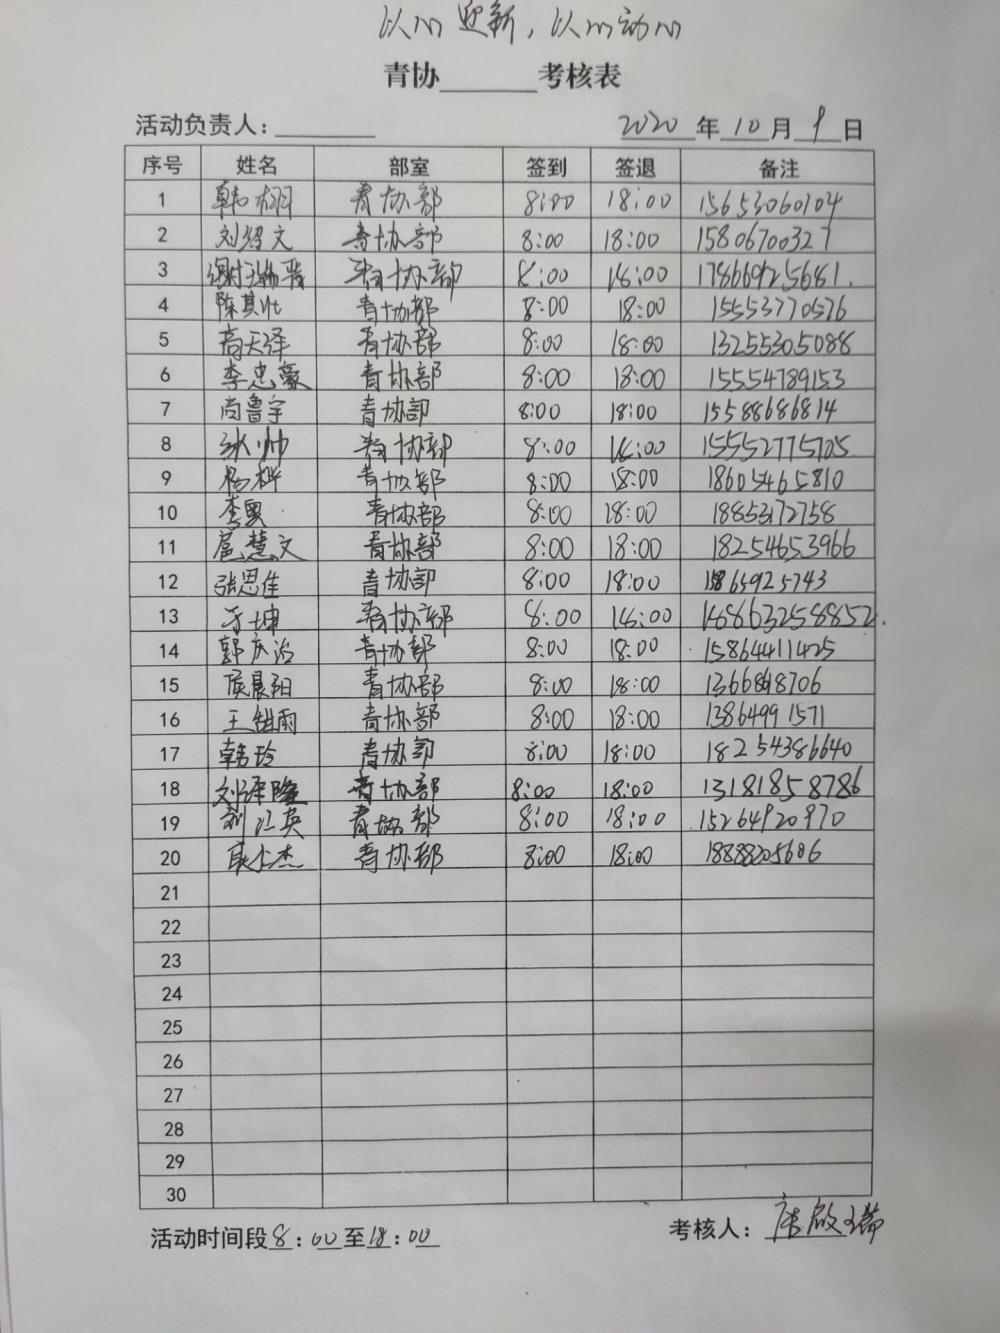 以心迎新，以心动心
青协______考核表
活动负责人：______ 2020年10月9日
序号 姓名 部室 签到 签退 备注
1 韩栩 青协部 8:00 18:00 15653060104
2 刘绍文 青协部 8:00 18:00 15806700327
3 青协部 8:00 18:00 17866925681.
4 陈其壮 青协部 8:00 18:00 15553770576
5 高天泽 青协部 8:00 18:00 13255305088
6 李忠豪 青协部 8:00 18:00 15554789153
7 尚鲁宇 青协部 8:00 18:00 15588686814
8 张帅 青协部 8:00 18:00 15552775705
9 杨桦 青协部 8:00 18:00 18605465810
10 李奥 青协部 8:00 18:00 18853172758
11 扈慧文 青协部 8:00 18:00 18254653966
12 张思佳 青协部 8:00 18:00 15865925743
13 于坤 青协部 8:00 18:00
14 郭庆治 青协部 8:00 18:00 15864411425
15 侯晨阳 青协部 8:00 18:00
16 王继雨 青协部 8:00 18:00 13864991571
17 韩玲 青协部 8:00 18:00 18254386640
18 刘泽隆 青协部 8:00 18:00 13181858786
19 刘江英 青协部 8:00 18:00 15264920970
20 耿仁杰 青协部 8:00 18:00 18888205606
21
22
23
24
25
26
27
28
29
30
活动时间段8:00至18:00 考核人：